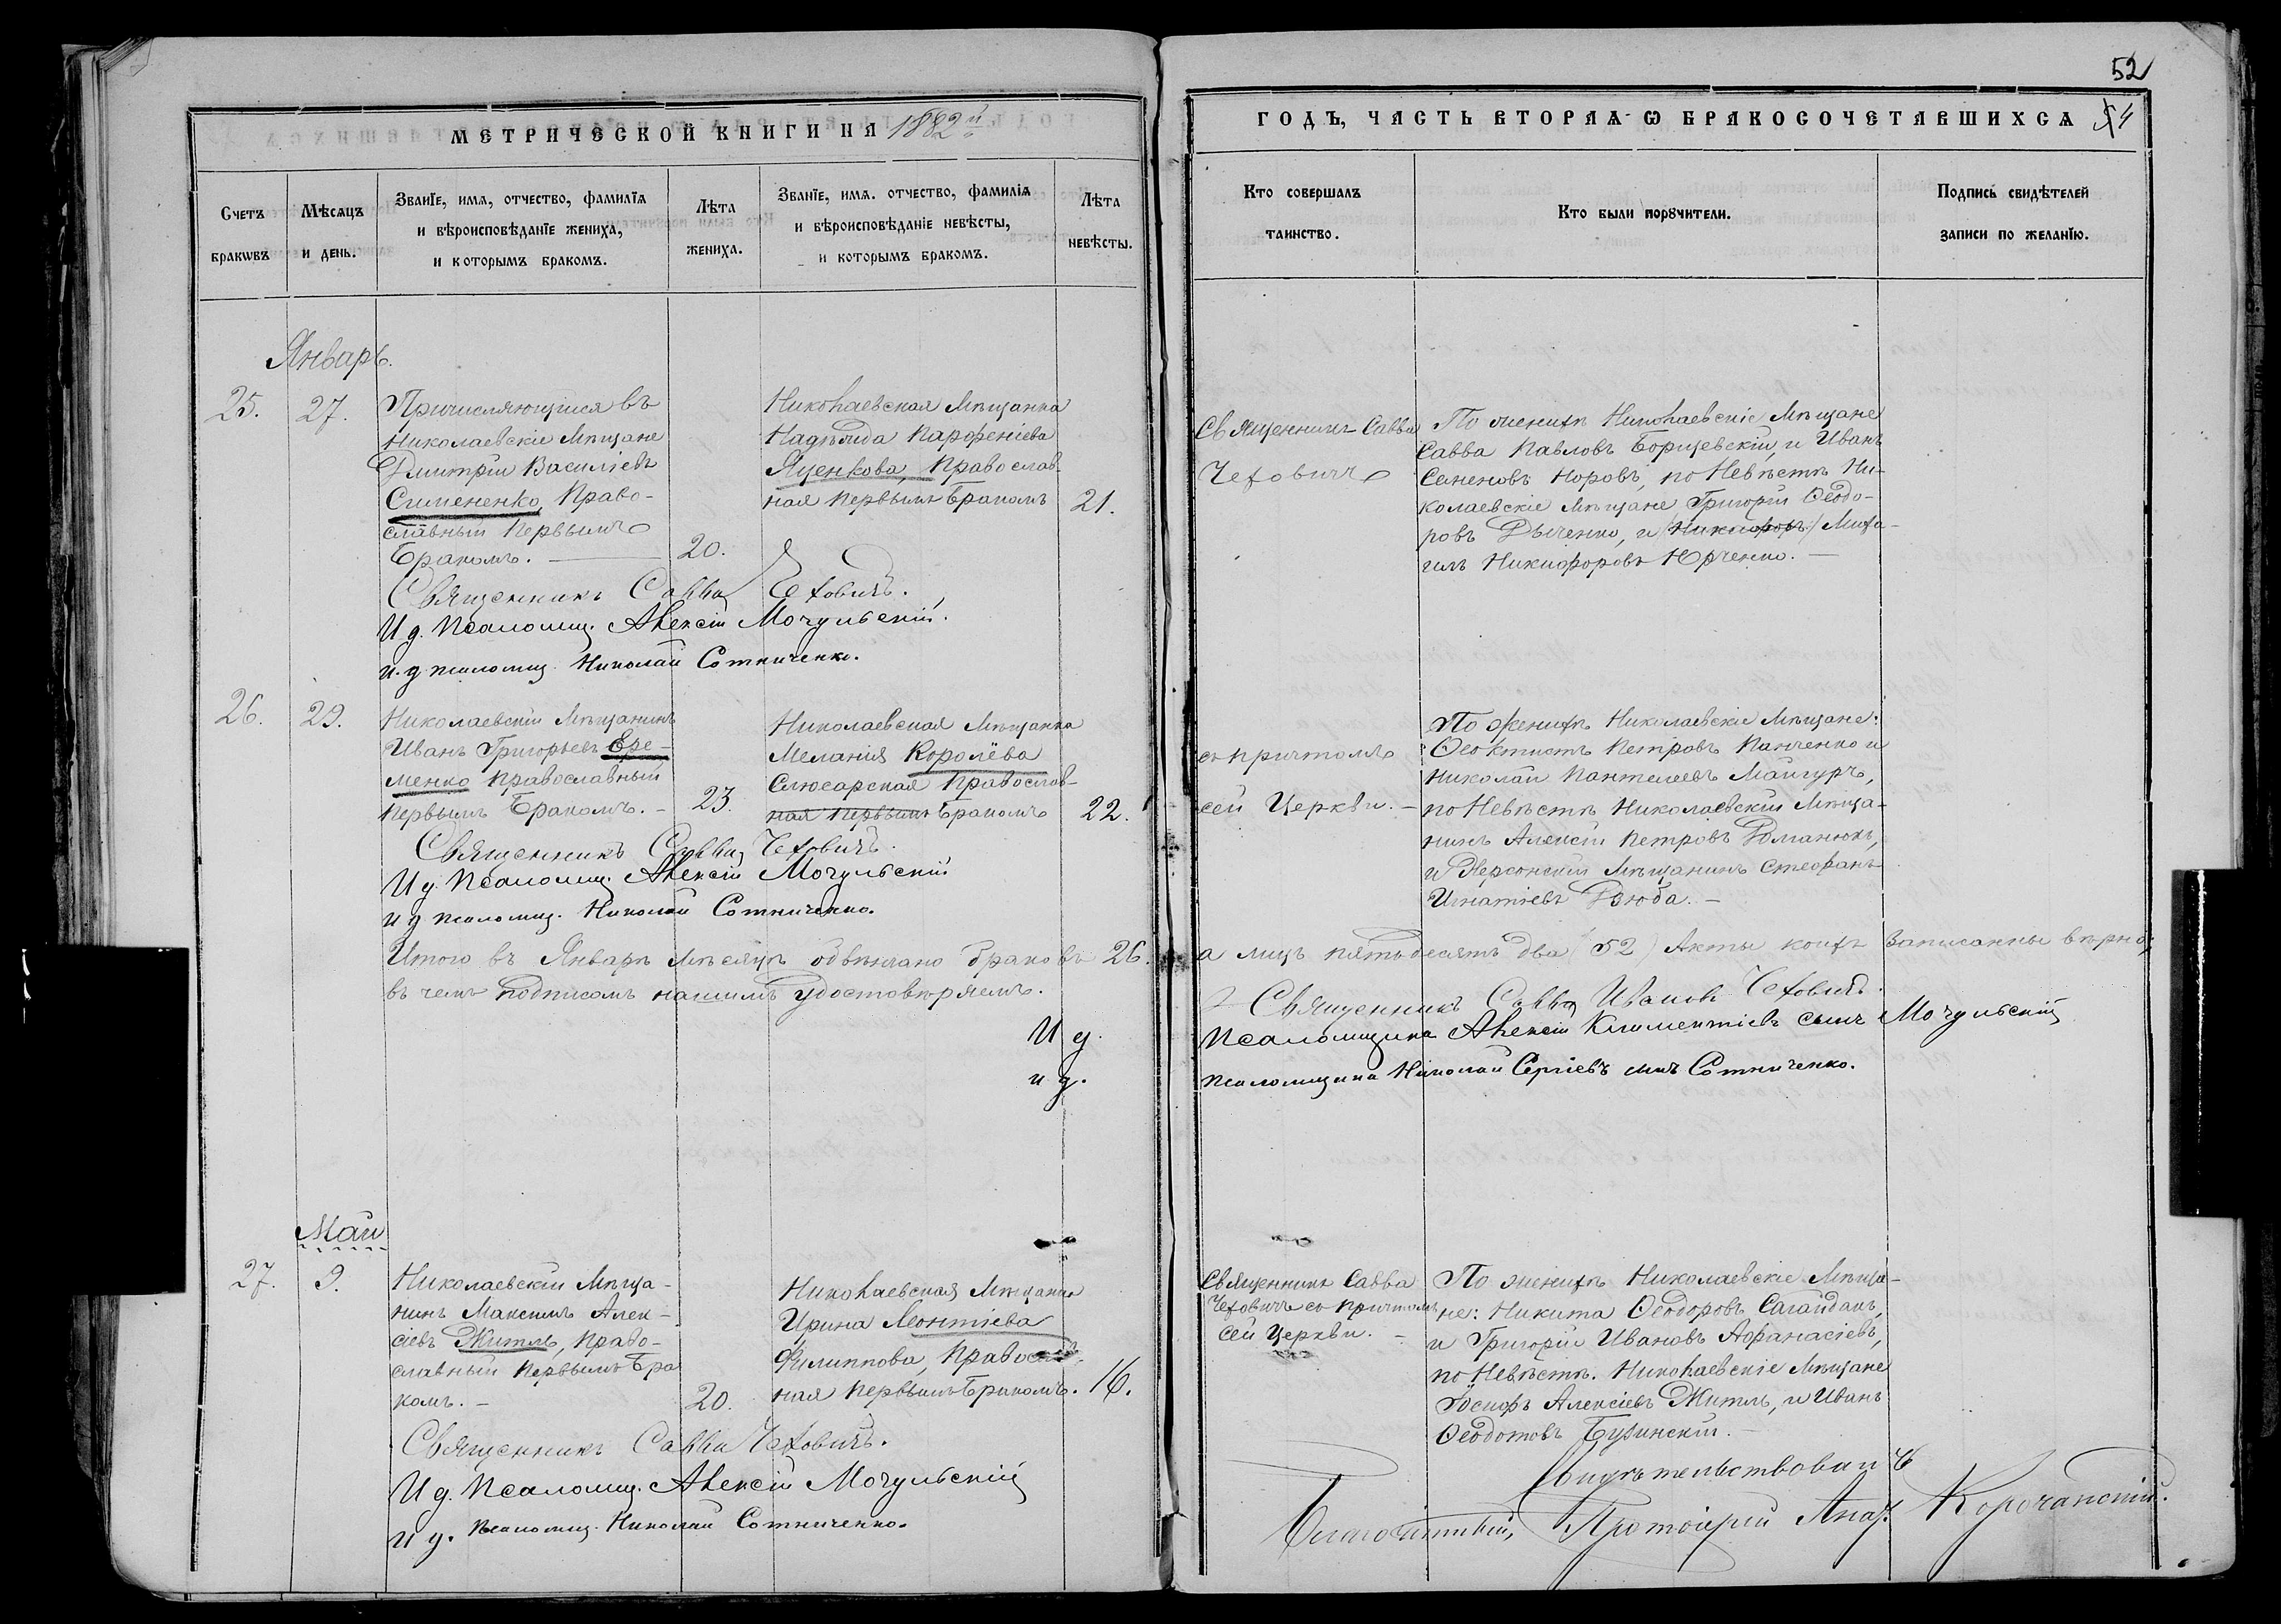 52
МЕТРИЧЕСКОЙ КНИГИ НА 1882й
ГОДЪ, ЧАСТЬ ВТОРАѦ Ѡ БРАКОСОЧЕТАВШИХСѦ 54
Счетъ браковъ
Мѣсѧцъ и день.
Званїе, имѧ, отчество, фамилїѧ
и вѣроисповѣданїе жениха,
и которымъ бракомъ.
Лѣта
жениха.
Званїе, имѧ. отчество, фамиліѧ
и вѣроисповѣданіе невѣсты,
и которымъ бракомъ.
Лѣта
невѣсты.
Кто совершалъ
таинство.
Кто были порꙋчители.
Подпись свидѣтелей
записи по желанїю.
Январь.
25.
27.
Причисляющійся въ
Николаевскіе Мѣщане
Дмитрій Василіевъ
Симененко, Право-
славный Первымъ
Бракомъ.
20.
Николаевская Мѣщанка
Надѣжда Парфеніева
Яценкова, Православ-
ная Первымъ Бракомъ
21.
Священникъ Савва
Чеховичъ
По женихѣ Николаевскіе Мѣщане
Савва Павловъ Борщевскій, и Иванъ
Семеновъ Норовъ, по Невѣстѣ Ни-
колаевскіе Мѣщане, Григорій Ѳеодо-
ровъ Дьяченко, и (Никифоръ) Миха-
илъ Никифоровъ Юрченко.
Священникъ Савва Чеховичъ.
И д. Псаломщ. Алексій Мочульскій.
и. д псаломщ. Николай Сотниченко.
26.
29.
Николаевскій Мѣщанинъ
Иванъ Григорьевъ Ере-
менко Православный
Первымъ Бракомъ.
23.
Николаевская Мѣщанка
Меланія Королёва
Слюсарская Православ-
ная первымъ Бракомъ
22.
съ причтомъ
сей Церкви.
По женихѣ Николаевскіе Мѣщане:
Ѳеоктистъ Петровъ Панченко и
Николай Пантелеевъ Майгуръ,
по Невѣстѣ Николаевскій Мѣща-
нинъ Алексій Петровъ Романюкъ,
и Херсонскій Мѣщанинъ Стефанъ
Игнатіевъ Дзюба.
Священникъ Савва Чеховичъ.
И д. Псаломщ. Алексій Мочульскій
и д псаломщ. Николай Сотниченко.
Итого въ Январѣ Мѣсяцѣ обвѣнчано браковъ 26. а лицъ пятьдесятъ два (52) Акты коихъ записанны вѣрно,
въ чемъ подписомъ нашимъ удостовѣряемъ.
Священникъ Савва Ивановъ Чеховичъ.
И д. Псаломщика Алексій Климентіевъ сынъ Мочульскій
и д. псаломщика Николай Сергіевъ сынъ Сотниченко.
Май
27.
9.
Николаевскій Мѣща-
нинъ Максимъ Алек-
сіевъ Житль, Право-
славный Первымъ Бра
комъ.
20.
Николаевская Мѣщанка
Ирина Леонтіева
Филиппова, Правос
ная Первымъ Бракомъ.
16.
Священникъ Савва
Чеховичъ съ причтомъ
сей Церкви.
По женихѣ Николаевскіе Мѣща-
не: Никита Ѳеодоровъ Сагайдакъ,
и Григорій Ивановъ Афанасіевъ,
по Невѣстѣ. Николаевскіе Мѣщане
Іосифъ Алексіевъ Житль, и Иванъ
Ѳеодотовъ Бужинскій.
Священникъ Савва Чеховичъ.
И д. Псаломщ. Алексій Мочульскій
и д. псаломщ. Николай Сотниченко.
Свидѣтельствовалъ
Благочинный, Протоіерей Корочанскій.